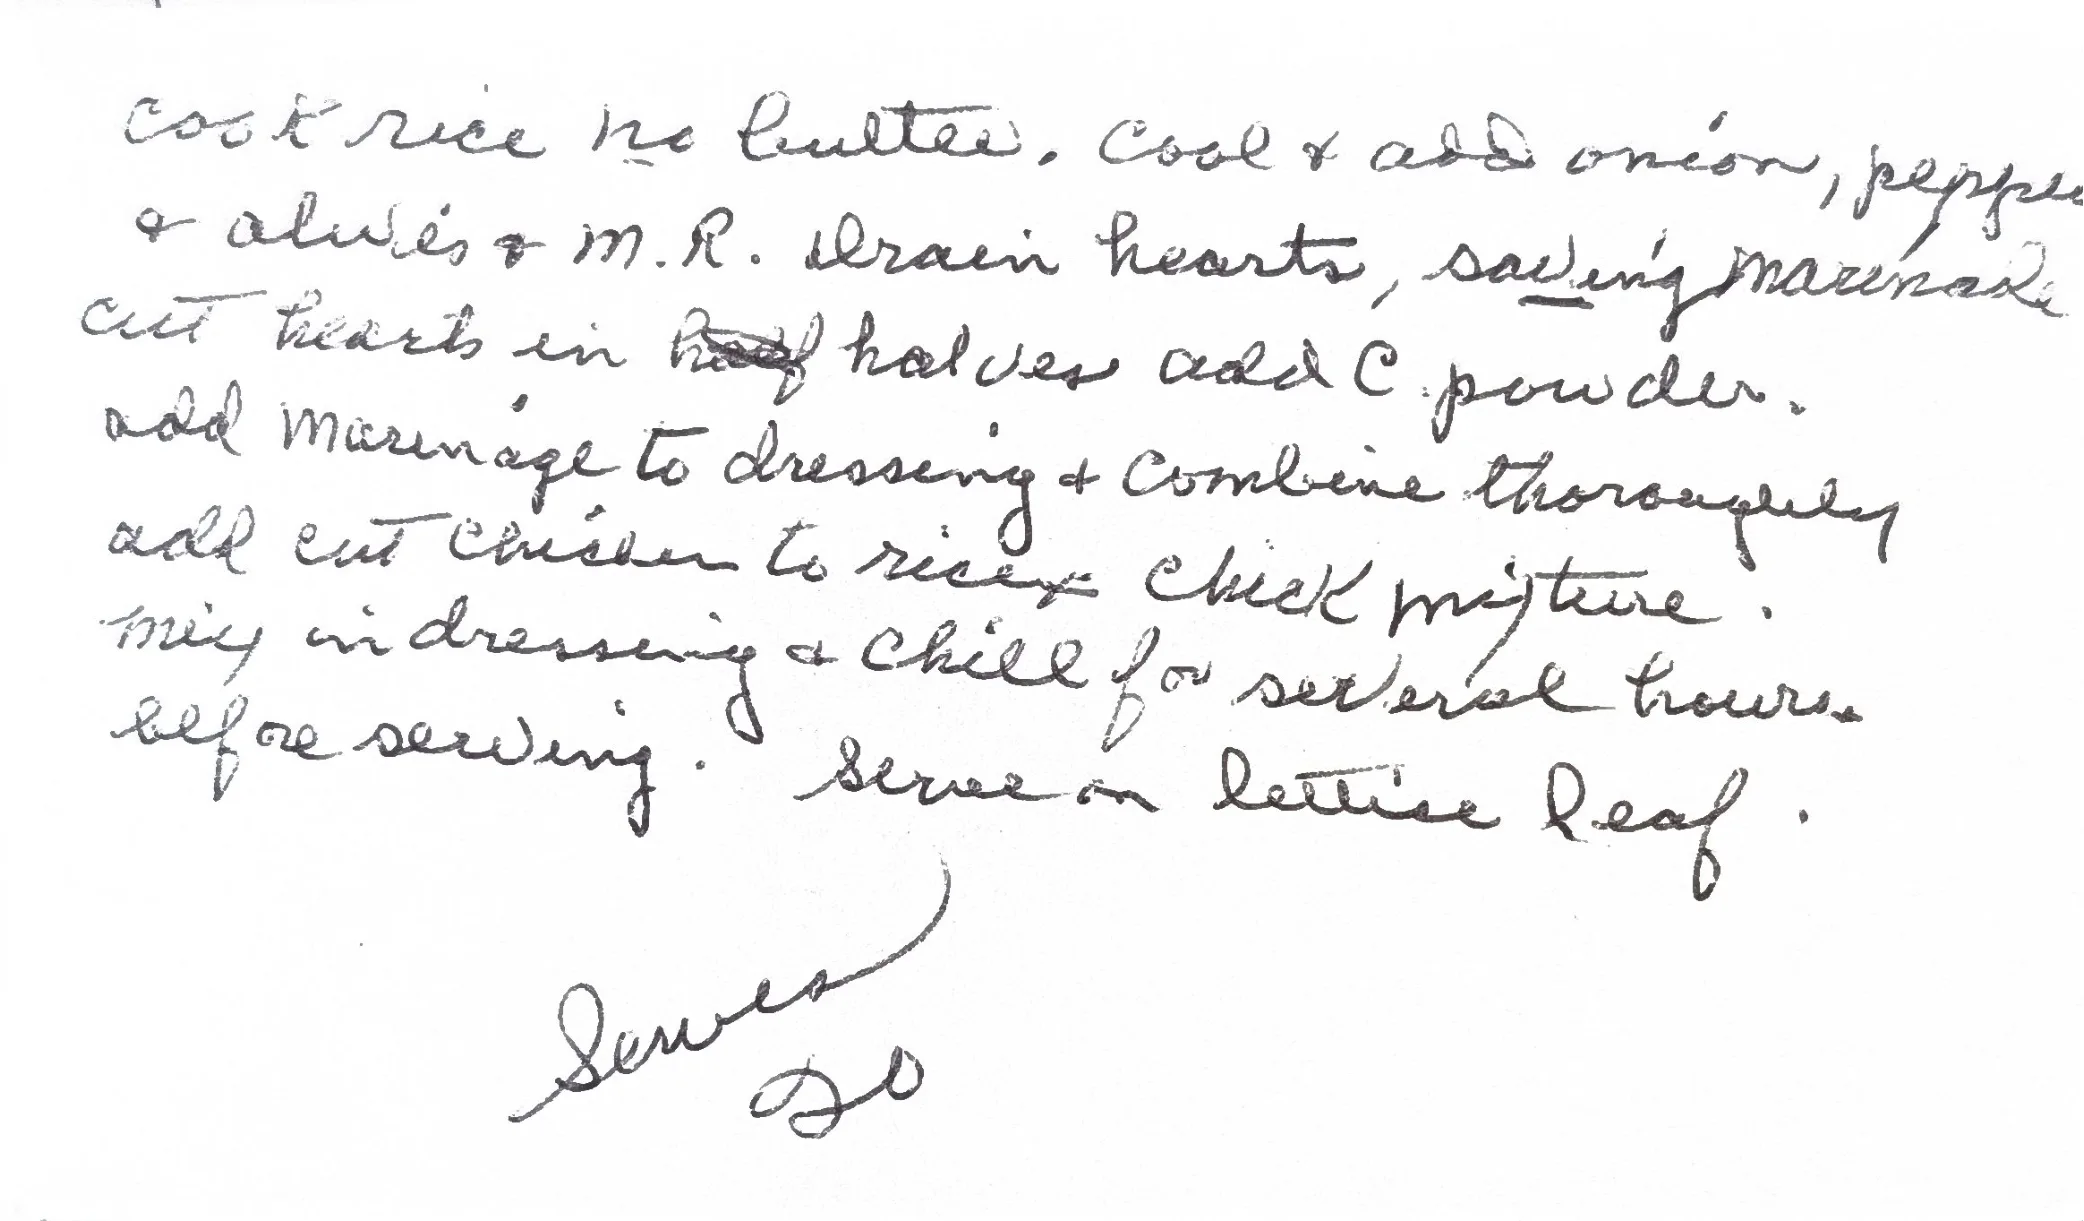 cook rice no butter. Cool & add onion, pepper
& olives & M.R. Drain hearts, saving marinade
cut hearts in halves add C. powder.
add marinage to dressing & combine thoroughly
add cut chicken to rice & chick mixture.
mix in dressing & chill for several hours
before serving. Serve on lettice leaf.
Serves
20